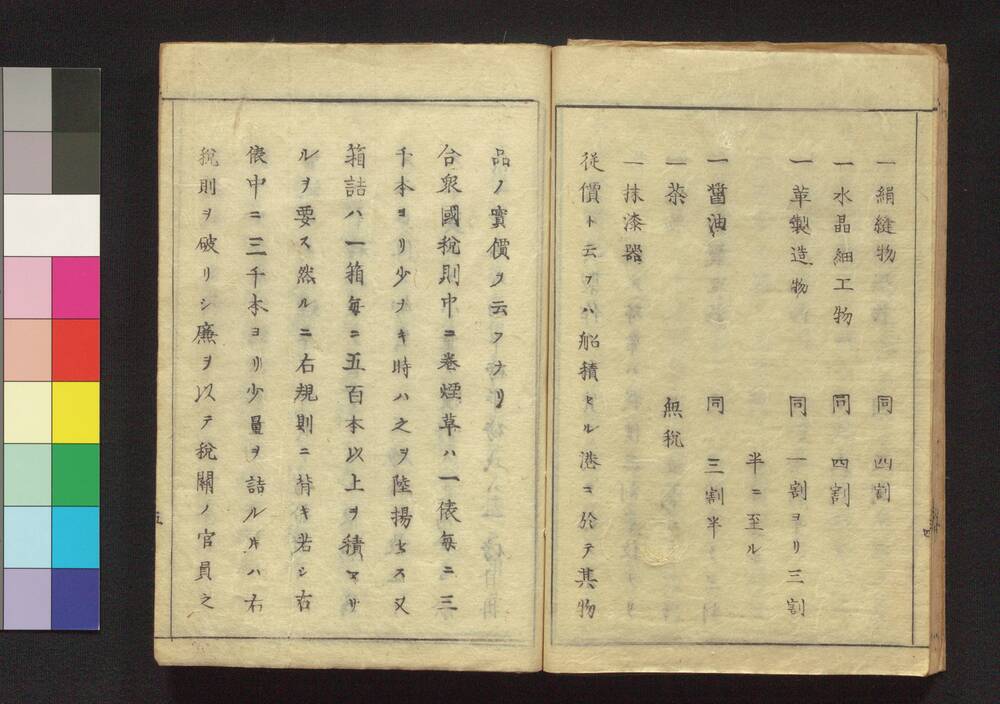 一絹縫物　同　四割
一水晶細工物　同　四割
一革製造物　同　一割ヨリ三割
半ニ至ル
一醤油　同　三割半
一茶　無稅
一抹漆器
從價ト云フハ船積セル港ニ於テ其物
品ノ實價ヲ云フナリ
合衆國稅則中ニ巻煙草ハ一俵每ニ三
千本ヨリ少ナキ時ハ之ヲ陸揚セス又
箱詰ハ一箱每ニ五百本以上ヲ積マサ
ルヲ要ス然ルニ右規則ニ背キ若シ右
俵中ニ三千本ヨリ少量ヲ詰ル片ハ右
稅則ヲ破リシ廉ヲ以テ稅關ノ官員之
五